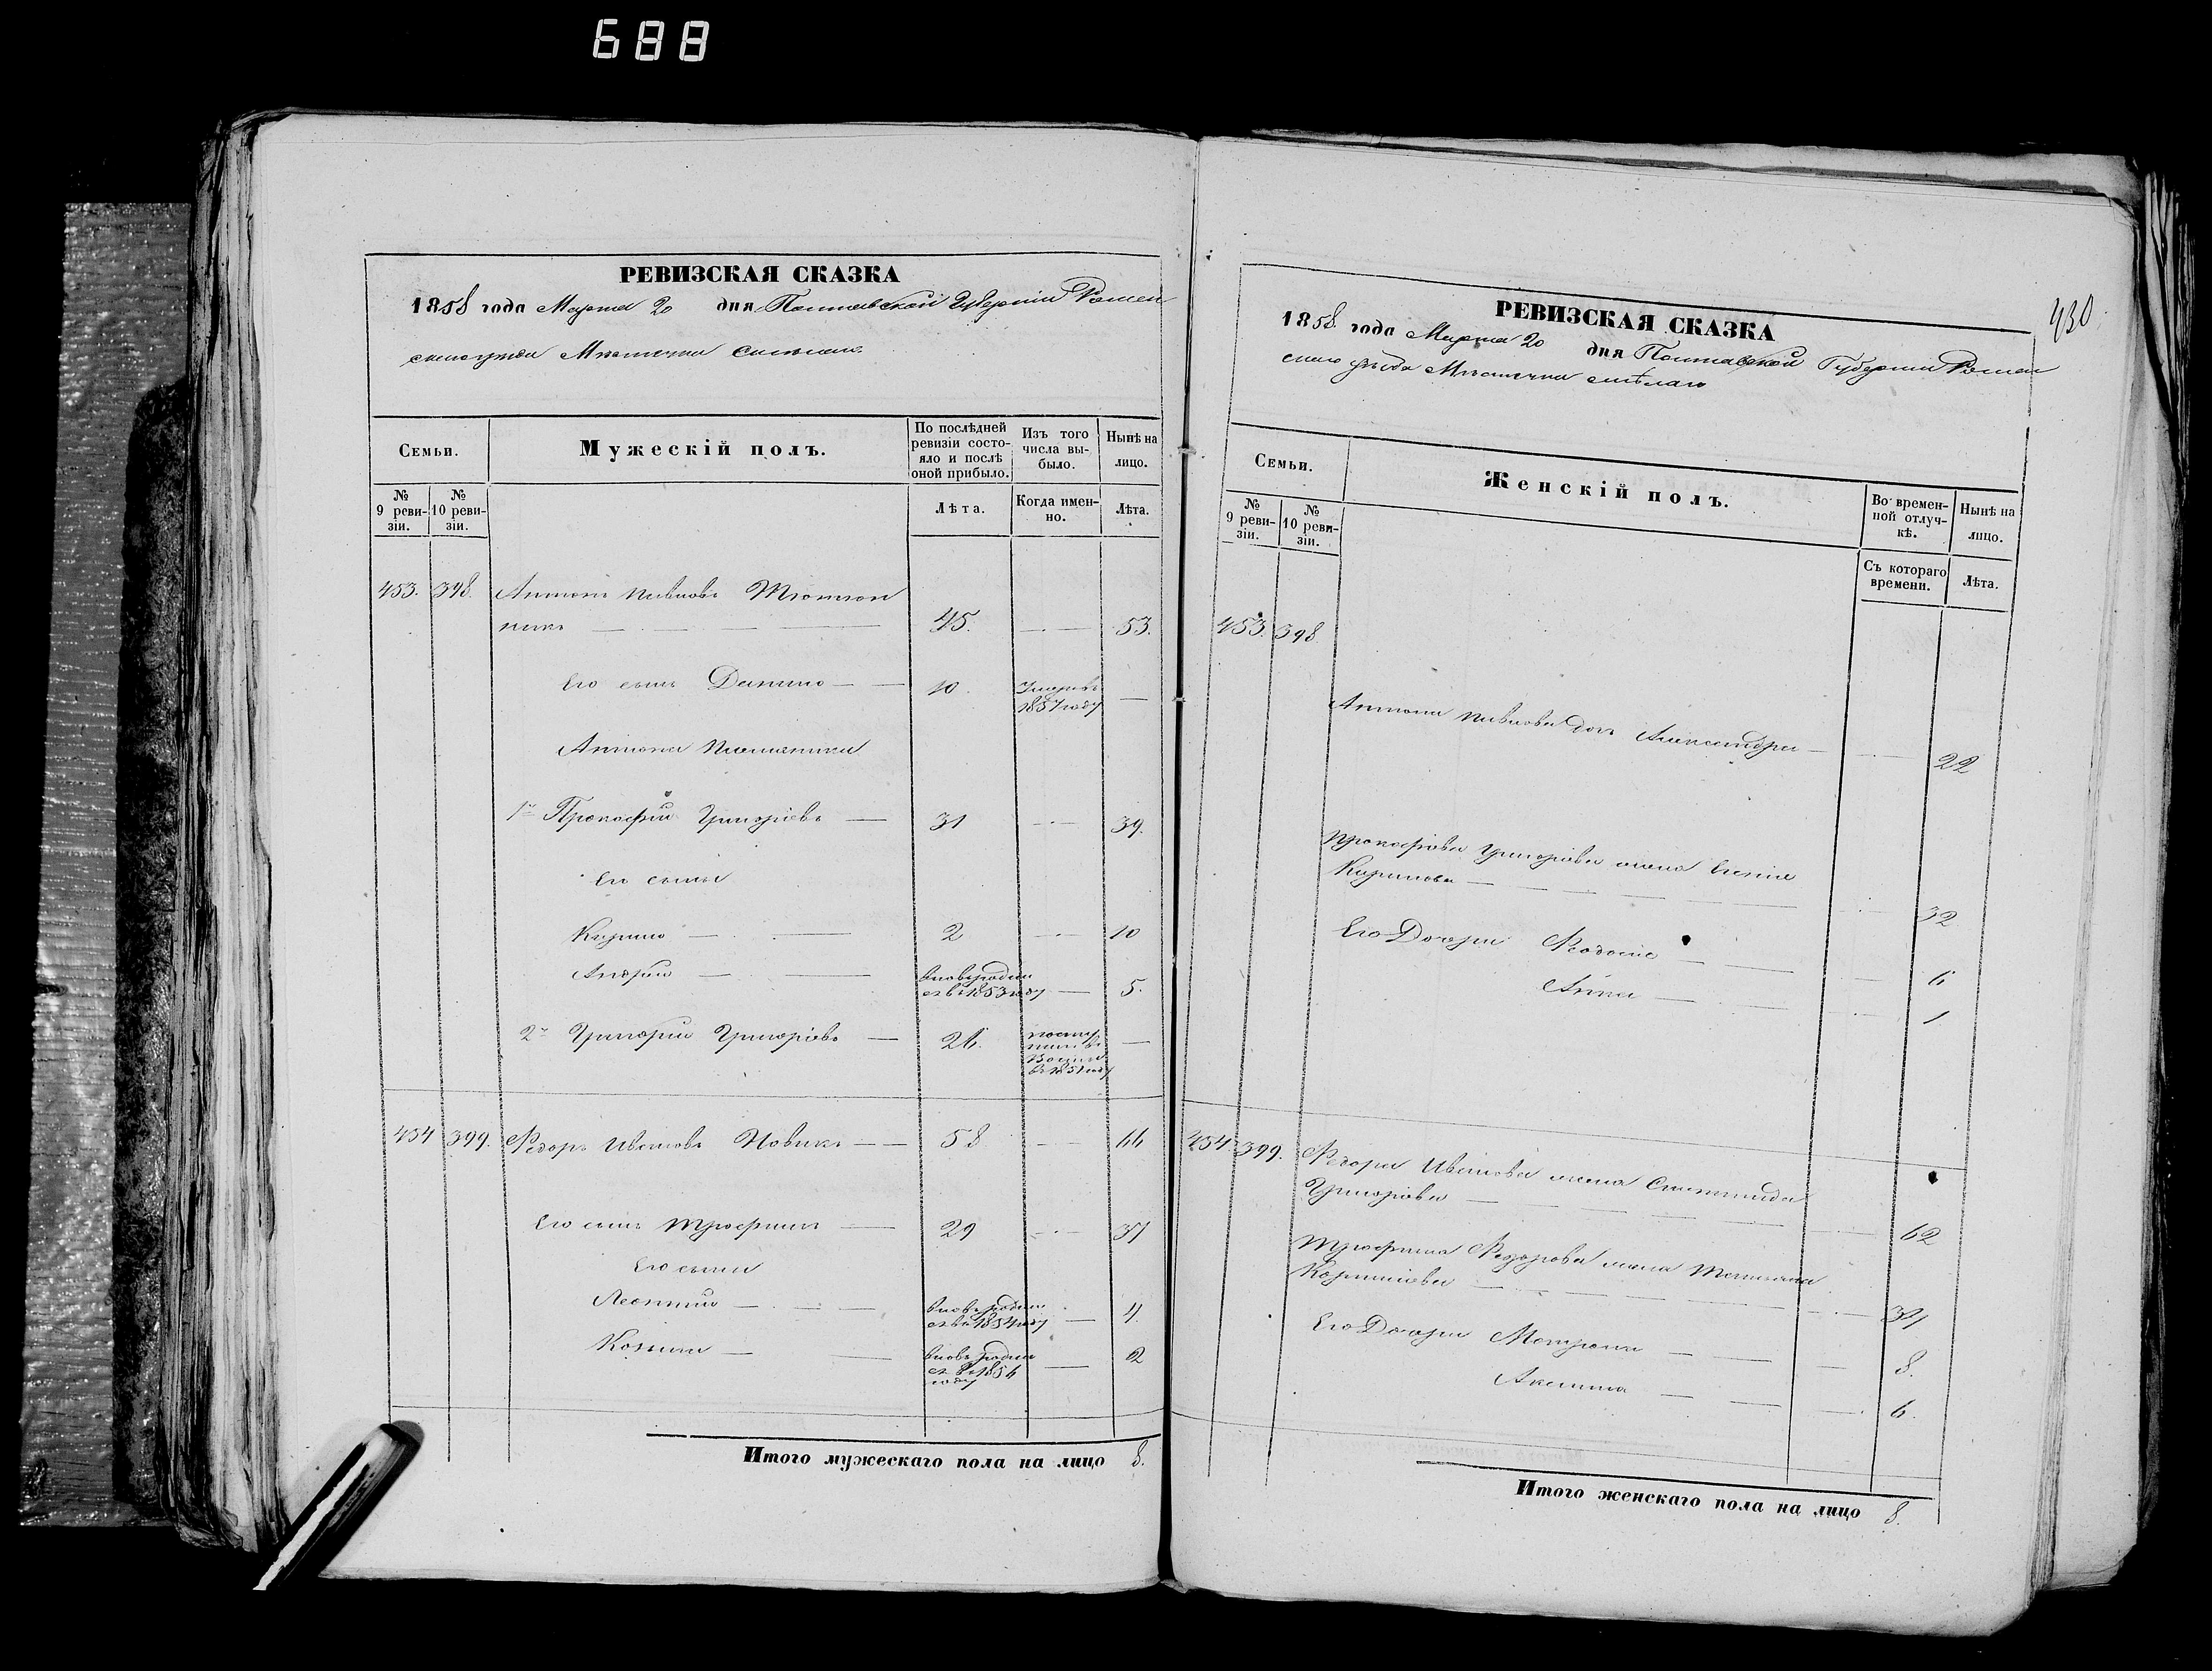 688
РЕВИЗСКАЯ СКАЗКА
1858 года Марта 20 дня Полтавской Губерніи Ромен
скаго уѣзда Мѣстечка Смѣлаго
Семьи.
Мужескій полъ.
По послѣдней ревизіи состояло и послѣ оной прибыло.
Изъ того числа выбыло.
Нынѣ на лицо.
№ 9 ревизіи.
№ 10 ревизіи.
Лѣта.
Когда именно.
Лѣта.
453. 398. Антонъ Павловъ
45. 53.
Его сынъ Данило 10. Умеръ въ 1857 году
Антона племянники
1й Прокофій Григоріевъ 31 39.
Его сыны
Кирило 2 10
Андрей вновь родился въ 1853 году 5.
2й Григорій Григоріевъ 26. въ 1851 году
454 399. Федоръ Ивановъ Новикъ 58 66
Его сынъ Трофимъ 29 37
Его сыны
Леонтий вновь родился въ 1854 году 4.
Козьма вновь родился въ 1856 году 2
Итого мужескаго пола на лицо 8.
430.
РЕВИЗСКАЯ СКАЗКА
1858 года Марта 20 дня Полтавской Губерніи Ромен
скаго уѣзда Мѣстечка Смѣлаго
Семьи.
Женскій полъ.
Во временной отлучкѣ.
Нынѣ на лицо.
№ 9 ревизіи.
№ 10 ревизіи.
Съ котораго времени.
Лѣта.
453. 398.
Антона Павлова дочь Александра 22
Прокофіева Григоріева жена Евгенія
Кирилова 32
Его Дочери Феодосія 6
Анна 1
454. 399. Федора Иванова жена Степанида
Григоріева 62
Трофима Федорова жена Татіана
34
Его Дочери Матрона 8.
Акилина 6.
Итого женскаго пола на лицо 8.